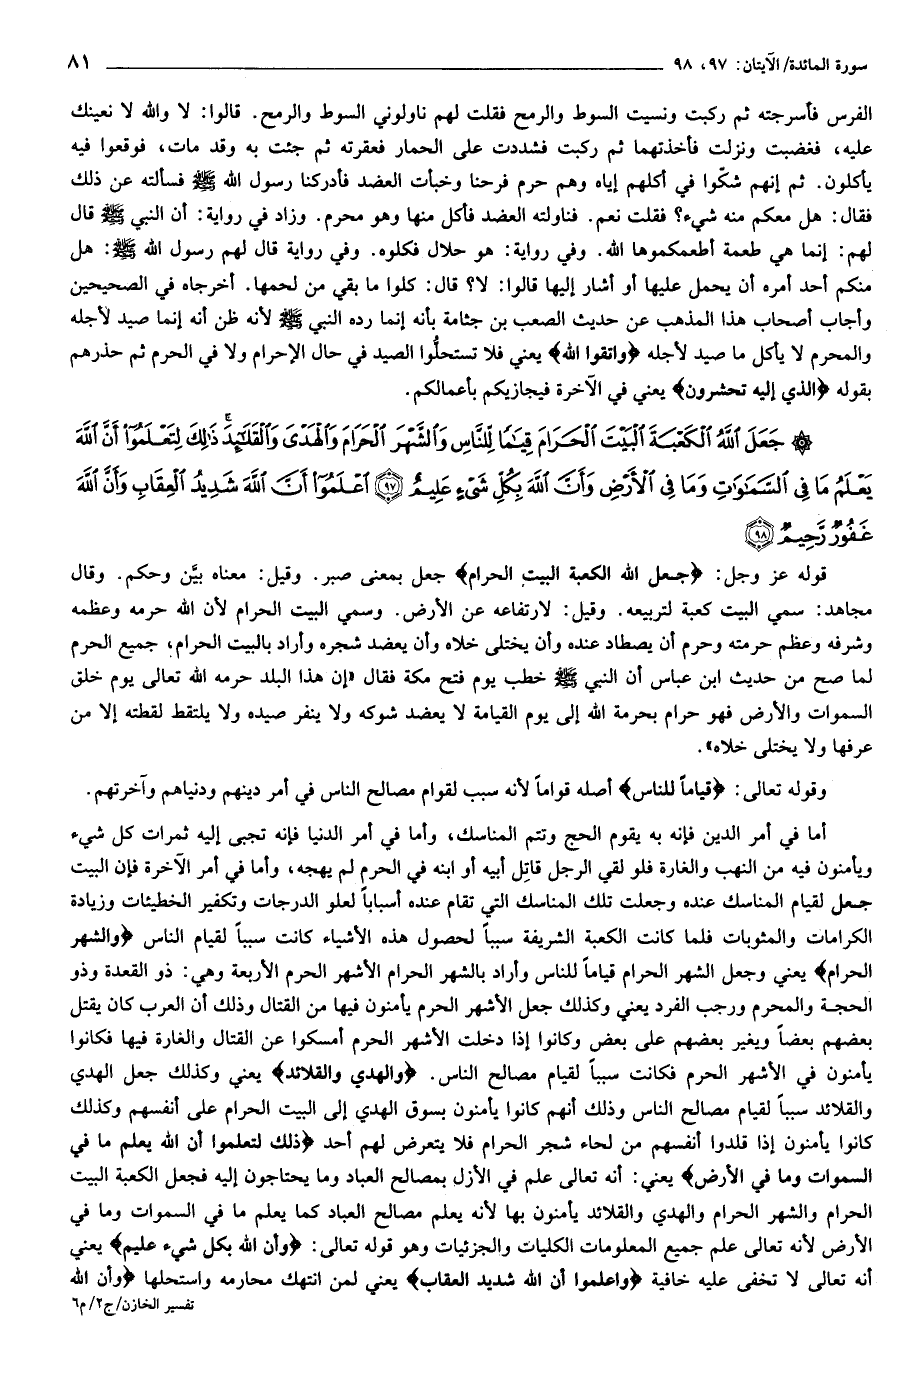 سورة المائدة/ الآيتان: ٩٧، ٩٨ ٨١
الفرس فأسرجته ثم ركبت ونسيت السوط والرمح فقلت لهم ناولوني السوط والرمح. قالوا: لا والله لا نعينك
عليه، فغضبت ونزلت فأخذتهما ثم ركبت فشددت على الحمار فعقرته ثم جئت به وقد مات، فوقعوا فيه
يأكلون. ثم إنهم شكّوا في أكلهم إياه وهم حرم فرحنا وخبأت العضد فأدركنا رسول الله ﷺ فسألته عن ذلك
فقال: هل معكم منه شيء؟ فقلت نعم. فناولته العضد فأكل منها وهو محرم. وزاد في رواية: أن النبي ﷺ قال
لهم: إنما هي طعمة أطعمكموها الله. وفي رواية: هو حلال فكلوه. وفي رواية قال لهم رسول الله ﷺ: هل
منكم أحد أمره أن يحمل عليها أو أشار إليها قالوا: لا؟ قال: كلوا ما بقي من لحمها. أخرجاه في الصحيحين
وأجاب أصحاب هذا المذهب عن حديث الصعب بن جثامة بأنه إنما رده النبي ﷺ لأنه ظن أنه إنما صيد لأجله
والمحرم لا يأكل ما صيد لأجله ﴿واتقوا الله﴾ يعني فلا تستحلُّوا الصيد في حال الإحرام ولا في الحرم ثم حذرهم
بقوله ﴿الذي إليه تحشرون﴾ يعني في الآخرة فيجازيكم بأعمالكم.
۞ جَعَلَ ٱللَّهُ ٱلْكَعْبَةَ ٱلْبَيْتَ ٱلْحَرَامَ قِيَٰمًا لِّلنَّاسِ وَٱلشَّهْرَ ٱلْحَرَامَ وَٱلْهَدْىَ وَٱلْقَلَٰٓئِدَ ۚ ذَٰلِكَ لِتَعْلَمُوٓا۟ أَنَّ ٱللَّهَ
يَعْلَمُ مَا فِى ٱلسَّمَٰوَٰتِ وَمَا فِى ٱلْأَرْضِ وَأَنَّ ٱللَّهَ بِكُلِّ شَىْءٍ عَلِيمٌ ﴿٩٧﴾ ٱعْلَمُوٓا۟ أَنَّ ٱللَّهَ شَدِيدُ ٱلْعِقَابِ وَأَنَّ ٱللَّهَ
غَفُورٌ رَّحِيمٌ ﴿٩٨﴾
قوله عز وجل: ﴿جعل الله الكعبة البيت الحرام﴾ جعل بمعنى صبر. وقيل: معناه بيَّن وحكم. وقال
مجاهد: سمي البيت كعبة لتربيعه. وقيل: لارتفاعه عن الأرض. وسمي البيت الحرام لأن الله حرمه وعظمه
وشرفه وعظم حرمته وحرم أن يصطاد عنده وأن يختلى خلاه وأن يعضد شجره وأراد بالبيت الحرام؛ جميع الحرم
لما صح من حديث ابن عباس أن النبي ﷺ خطب يوم فتح مكة فقال «إن هذا البلد حرمه الله تعالى يوم خلق
السموات والأرض فهو حرام بحرمة الله إلى يوم القيامة لا يعضد شوكه ولا ينفر صيده ولا يلتقط لقطته إلا من
عرفها ولا يختلى خلاه».
وقوله تعالى: ﴿قياماً للناس﴾ أصله قواماً لأنه سبب لقوام مصالح الناس في أمر دينهم ودنياهم وآخرتهم.
أما في أمر الدين فإنه به يقوم الحج وتتم المناسك، وأما في أمر الدنيا فإنه تجبى إليه ثمرات كل شيء
ويأمنون فيه من النهب والغارة فلو لقي الرجل قاتِل أبيه أو ابنه في الحرم لم يهجه، وأما في أمر الآخرة فإن البيت
جعل لقيام المناسك عنده وجعلت تلك المناسك التي تقام عنده أسباباً لعلو الدرجات وتكفير الخطيئات وزيادة
الكرامات والمثوبات فلما كانت الكعبة الشريفة سبباً لحصول هذه الأشياء كانت سبباً لقيام الناس ﴿والشهر
الحرام﴾ يعني وجعل الشهر الحرام قياماً للناس وأراد بالشهر الحرام الأشهر الحرم الأربعة وهي: ذو القعدة وذو
الحجة والمحرم ورجب الفرد يعني وكذلك جعل الأشهر الحرم يأمنون فيها من القتال وذلك أن العرب كان يقتل
بعضهم بعضاً ويغير بعضهم على بعض وكانوا إذا دخلت الأشهر الحرم أمسكوا عن القتال والغارة فيها فكانوا
يأمنون في الأشهر الحرم فكانت سبباً لقيام مصالح الناس. ﴿والهدي والقلائد﴾ يعني وكذلك جعل الهدي
والقلائد سبباً لقيام مصالح الناس وذلك أنهم كانوا يأمنون بسوق الهدي إلى البيت الحرام على أنفسهم وكذلك
كانوا يأمنون إذا قلدوا أنفسهم من لحاء شجر الحرام فلا يتعرض لهم أحد ﴿ذلك لتعلموا أن الله يعلم ما في
السموات وما في الأرض﴾ يعني: أنه تعالى علم في الأزل بمصالح العباد وما يحتاجون إليه فجعل الكعبة البيت
الحرام والشهر الحرام والهدي والقلائد يأمنون بها لأنه يعلم مصالح العباد كما يعلم ما في السموات وما في
الأرض لأنه تعالى علم جميع المعلومات الكليات والجزئيات وهو قوله تعالى: ﴿وأن الله بكل شيء عليم﴾ يعني
أنه تعالى لا تخفى عليه خافية ﴿واعلموا أن الله شديد العقاب﴾ يعني لمن انتهك محارمه واستحلها ﴿وأن الله
تفسير الخازن/ج٢/م٦